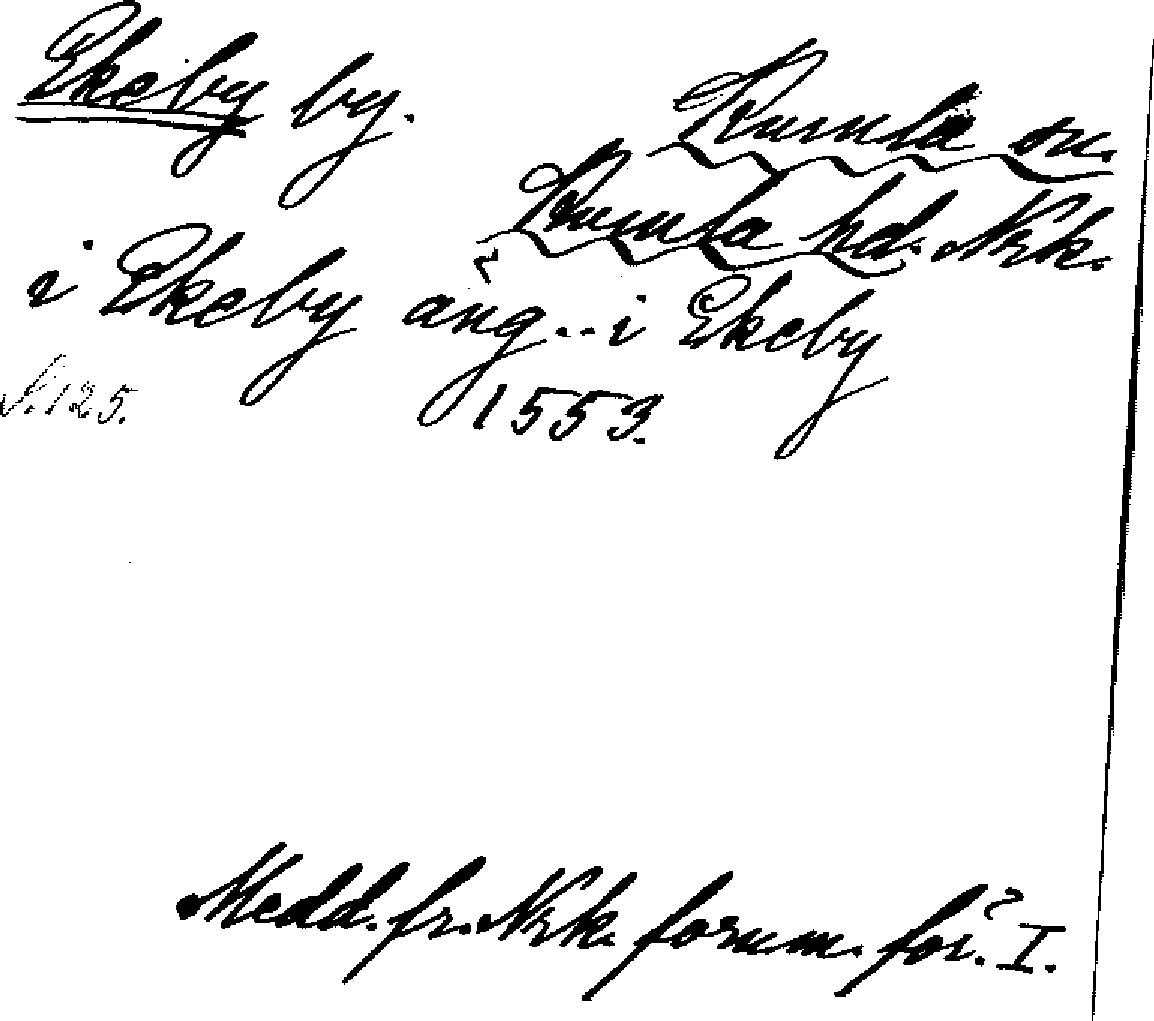 Ekeby by.
Kumla sn.
Kumla hd. Nrk.
i Ekeby äng..i Ekeby
S.125.
1553.
Medd. fr. Nrk. fornm. för. I.